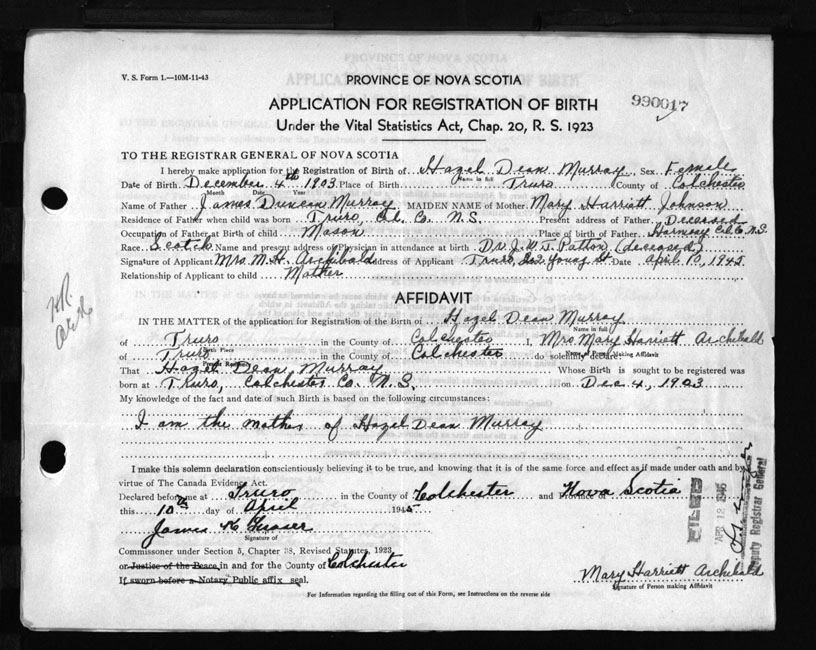 V. S. Form 1.—10M-11-43
PROVINCE OF NOVA SCOTIA
APPLICATION FOR REGISTRATION OF BIRTH
990017
Under the Vital Statistics Act, Chap. 20, R. S. 1923
TO THE REGISTRAR GENERAL OF NOVA SCOTIA
I hereby make application for the Registration of Birth of Hazel Dean Murray Sex Female
Name in full
Date of Birth December 4th 1903 Place of Birth Truro County of Colchester
Month Date Year
Name of Father James Duncan Murray MAIDEN NAME of Mother Mary Harriett Johnson
Residence of Father when child was born Truro, Col. Co. N.S. Present address of Father Deceased
Occupation of Father at Birth of child Mason Place of birth of Father Col. Co. N.S.
Race Scotch Name and present address of Physician in attendance at birth Dr. J. W. T. Patton (deceased)
Signature of Applicant Mrs. M. H. Archibald Address of Applicant Truro, Young St. Date April 10, 1945
Relationship of Applicant to child Mother
AFFIDAVIT
IN THE MATTER of the application for Registration of the Birth of Hazel Dean Murray
Name in full
of Truro in the County of Colchester I, Mrs Mary Harriett Archibald
Birth Place Name of Person Making Affidavit
of Truro in the County of Colchester do solemnly declare:
That Hazel Dean Murray Whose Birth is sought to be registered was
born at Truro, Colchester Co. N.S. on Dec 4, 1903
My knowledge of the fact and date of such Birth is based on the following circumstances:
I am the mother of Hazel Dean Murray
I make this solemn declaration conscientiously believing it to be true, and knowing that it is of the same force and effect as if made under oath and by
virtue of The Canada Evidence Act.
Declared before me at Truro in the County of Colchester and Province of Nova Scotia
this 10th day of April 1945
James Fraser
Signature of
Commissioner under Section 5, Chapter 38, Revised Statutes, 1923
or Justice of the Peace in and for the County of Colchester
If sworn before a Notary Public affix seal.
FILED
APR 12 1945
Deputy Registrar General
Mary Harriett Archibald
Signature of Person making Affidavit
For Information regarding the filling out of this Form, see Instructions on the reverse side